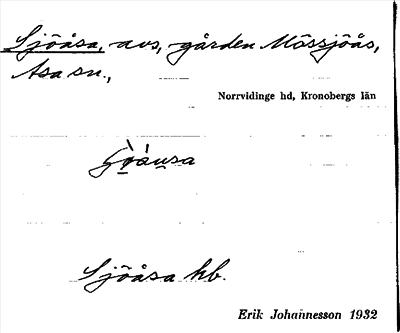 Sjöåsa, avs, gården Mössjöås,
Asa sn.,
Norrvidinge hd, Kronobergs län
Sjöåsa hb.
Erik Johannesson 1932